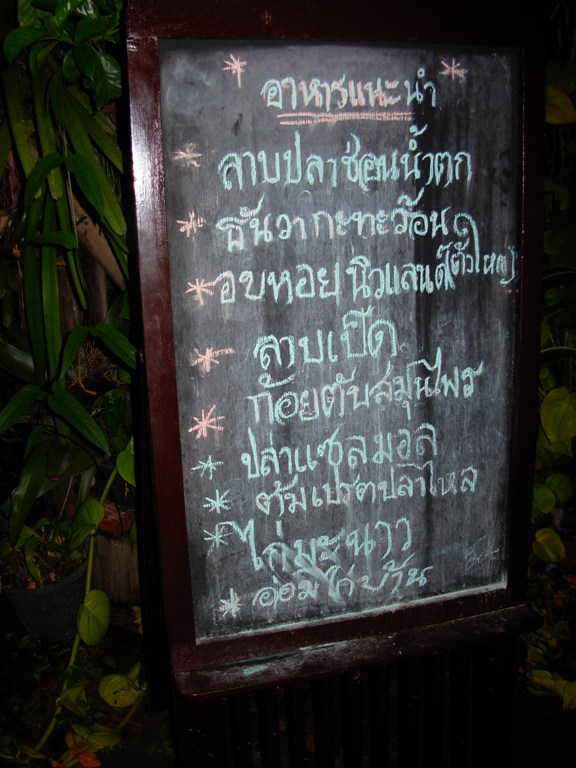 อาหารแนะนำ
ลาบปลาช่อนน้ำตก
ธันวากะทะร้อน
อบหอยนิวแลนด์(ตัวใหญ่)
ลาบเป็ด
ก้อยตับสมุนไพร
ปล่าแซลมอล
ต้มเปรตปลาไหล
ไก่มะนาว
อ่อมไก่บ้าน